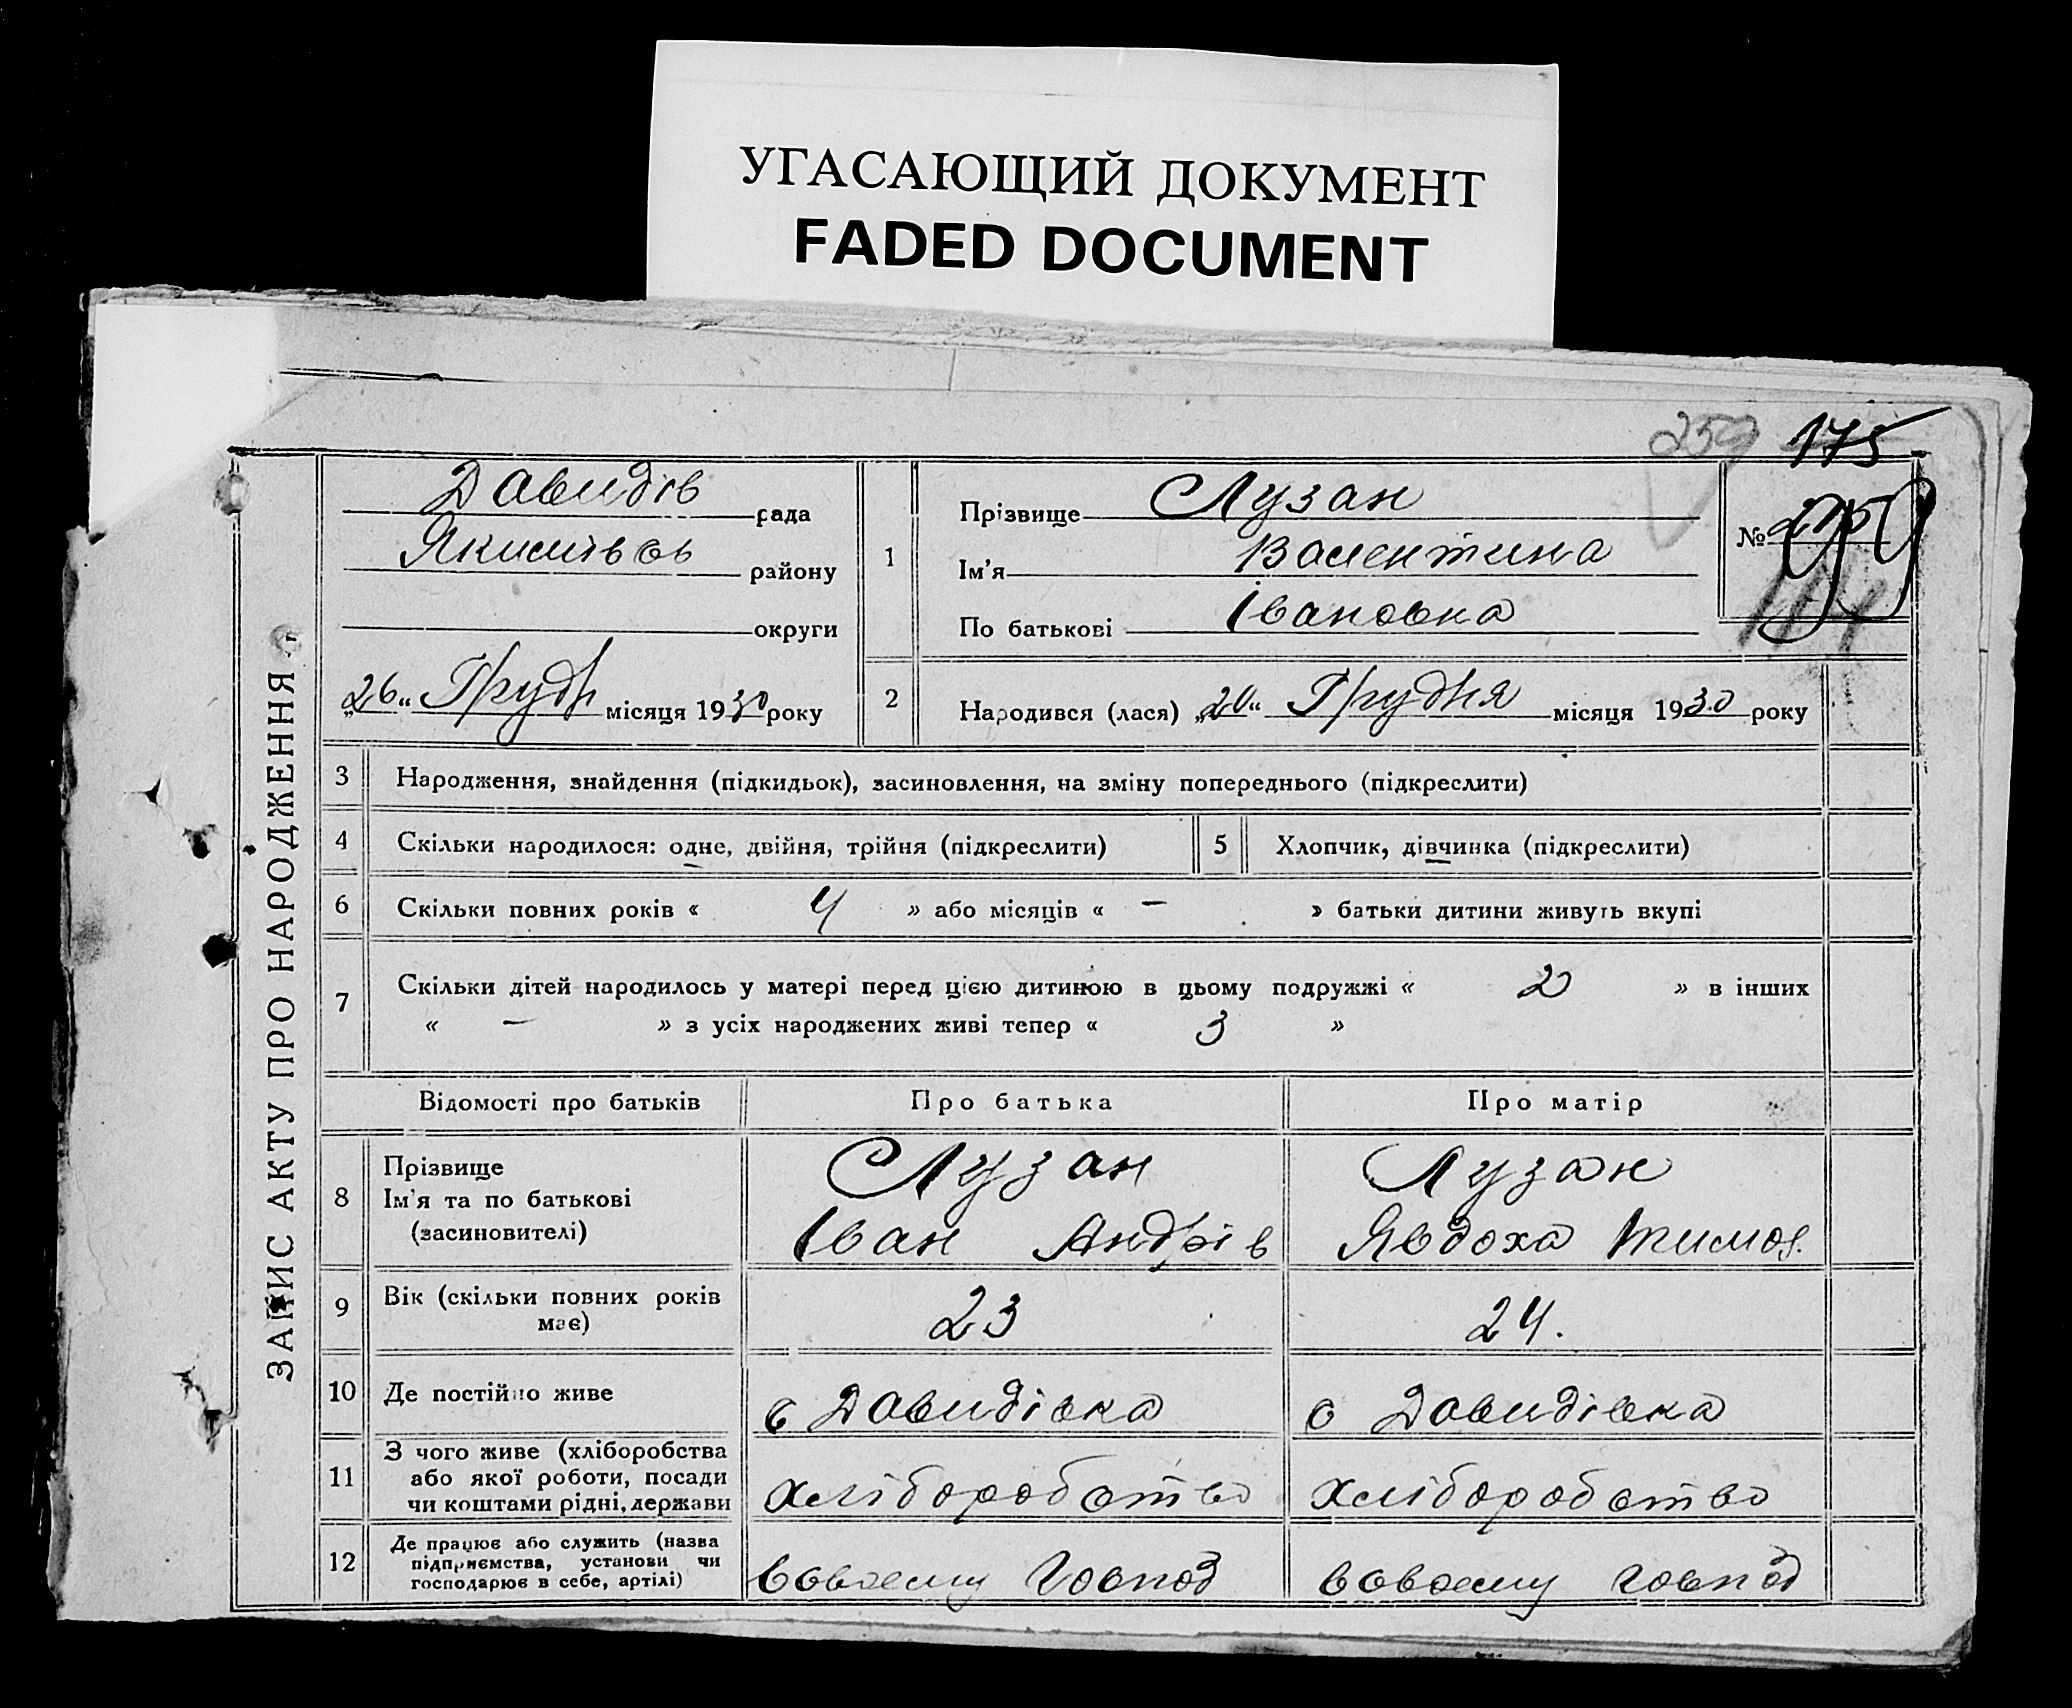 УГАСАЮЩИЙ ДОКУМЕНТ
FADED DOCUMENT
259 175
ЗАПИС АКТУ ПРО НАРОДЖЕННЯ
Давидів рада
Якимівсь району
округи
„26“ Грудн місяця 1930 року
1
Прізвище Лузан
Ім'я Валентина
По батькові Івановна
№
99
2 Народився (лася) „20“ Грудня місяця 1930 року
3 Народження, знайдення (підкидьок), засиновлення, на зміну попереднього (підкреслити)
4 Скільки народилося: одне, двійня, трійня (підкреслити) 5 Хлопчик, дівчинка (підкреслити)
6 Скільки повних років « 4 » або місяців « — » батьки дитини живуть вкупі
7 Скільки дітей народилось у матері перед цією дитиною в цьому подружжі « 2 » в інших
« — » з усіх народжених живі тепер « 3 »
Відомості про батьків Про батька Про матір
8 Прізвище
Ім'я та по батькові
(засиновителі)
Лузан
Іван Андрів
Лузан
Явдоха Тимоф.
9 Вік (скільки повних років
має)
23 24.
10 Де постійно живе с Давидівка с Давидівка
11 З чого живе (хліборобства
або якої роботи, посади
чи коштами рідні, держави
хліборобство хліборобство
12 Де працює або служить (назва
підприємства, установи чи
господарює в себе, артілі)
всвоєму господ всвоєму господ